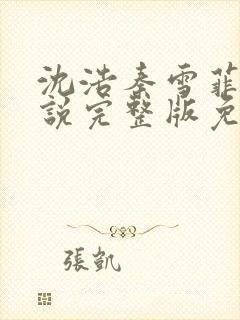 沈浩秦雪菲
說完整版免
張凱